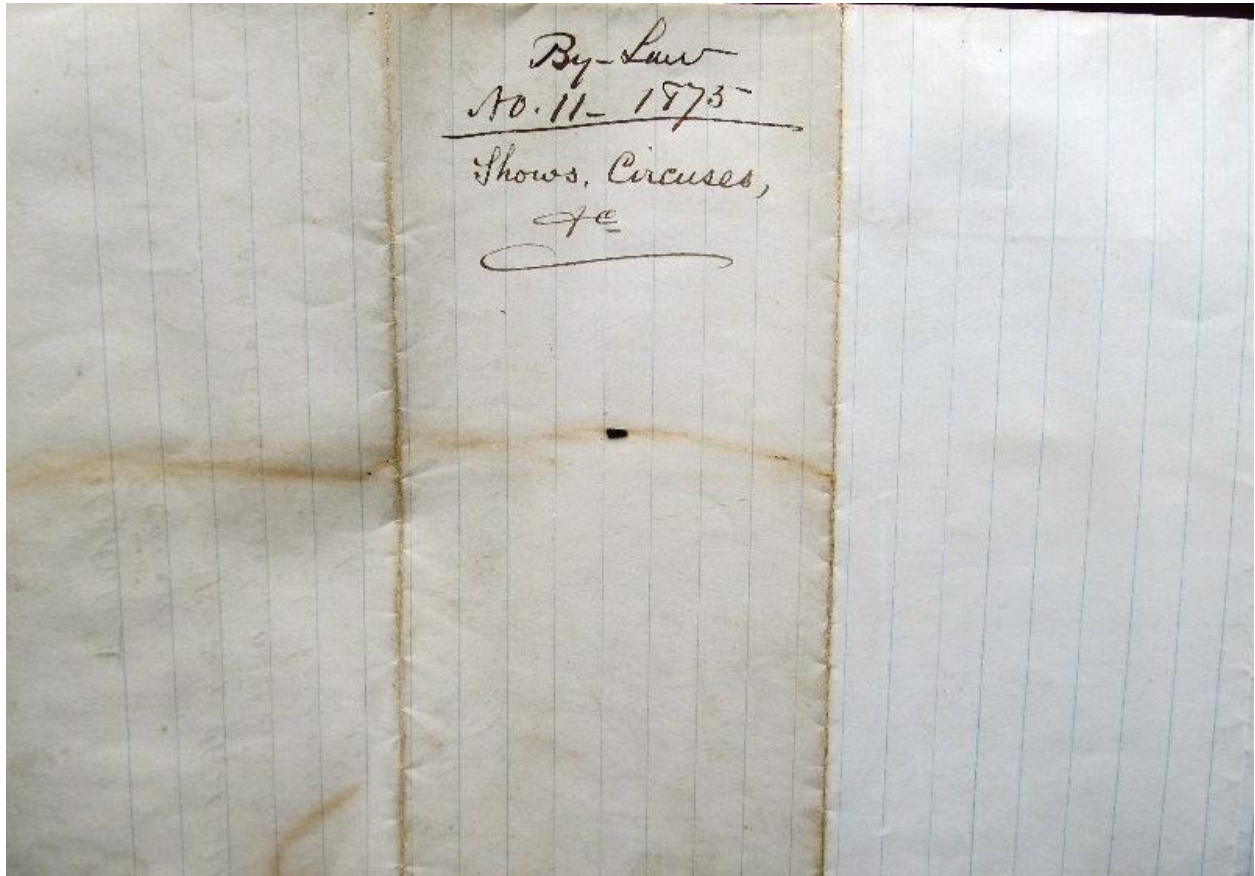 By-Law
No. 11- 1875
Shows, Circuses,
&c